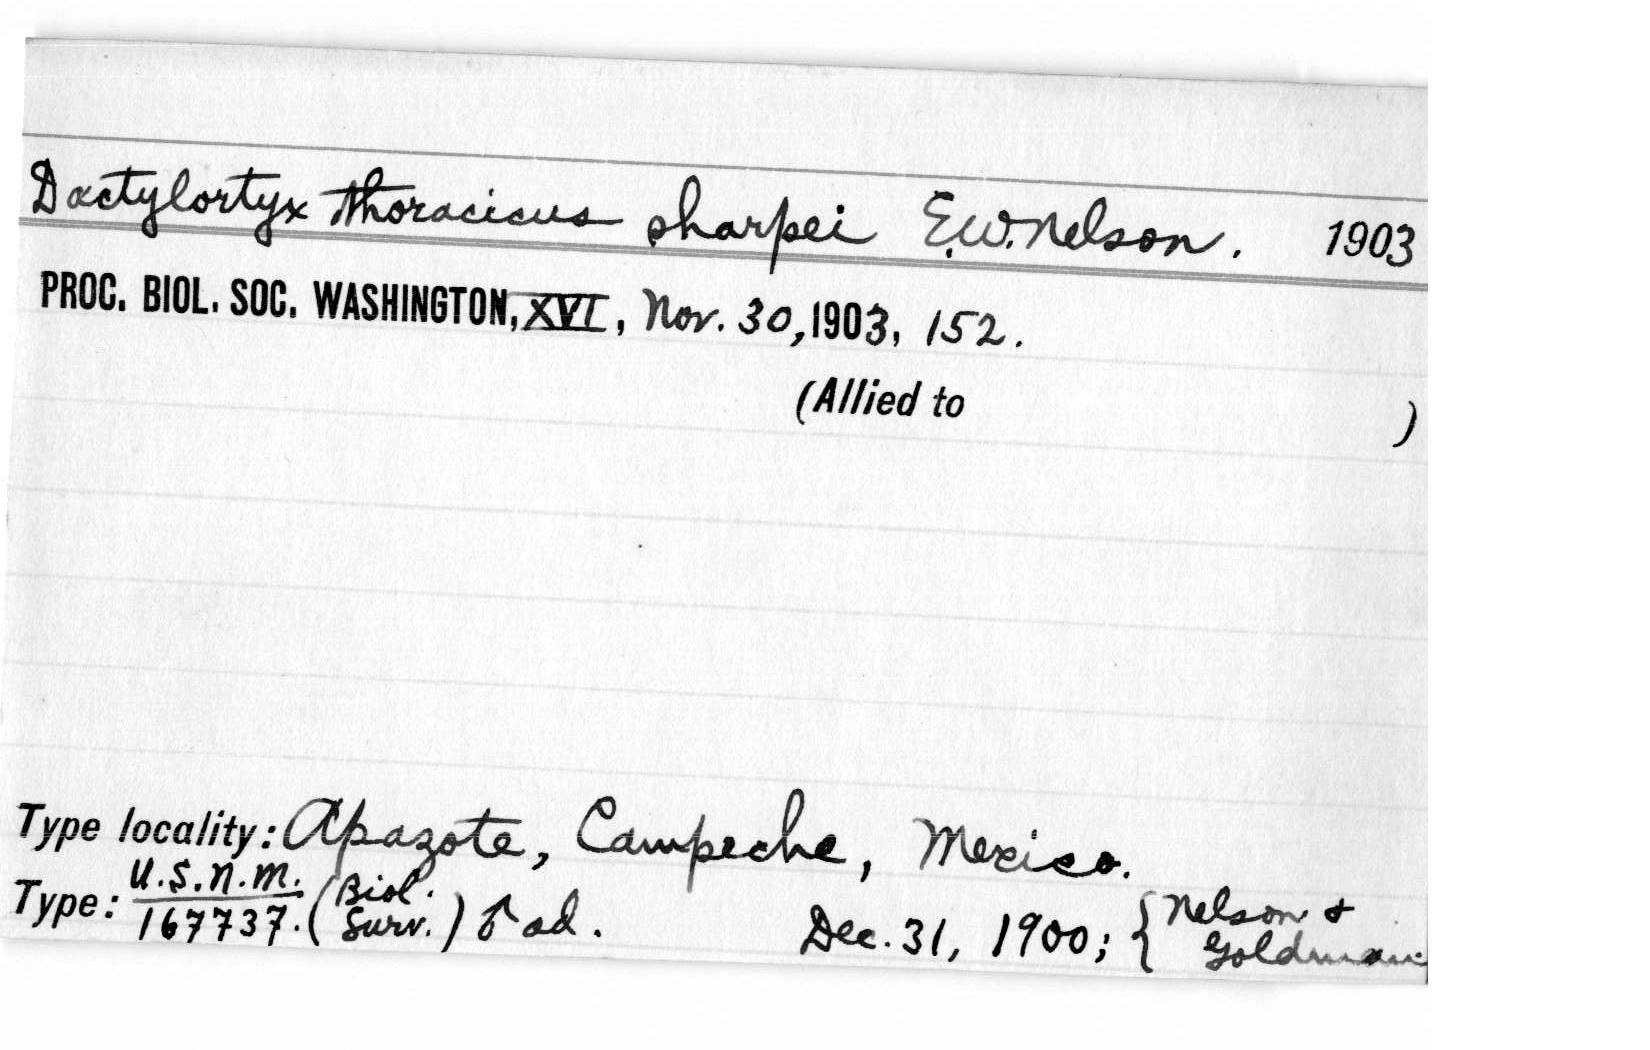 Dactylortyx thoracicus sharpei E.W. Nelson. 1903
PROC. BIOL. SOC. WASHINGTON, XVI, Nov. 30, 1903, 152.
(Allied to )
Type locality: Apazote, Campeche, Mexico.
Type: U.S.N.M. 167737. (Biol. Surv.) ♂ ad. Dec. 31, 1900; { Nelson & Goldman.